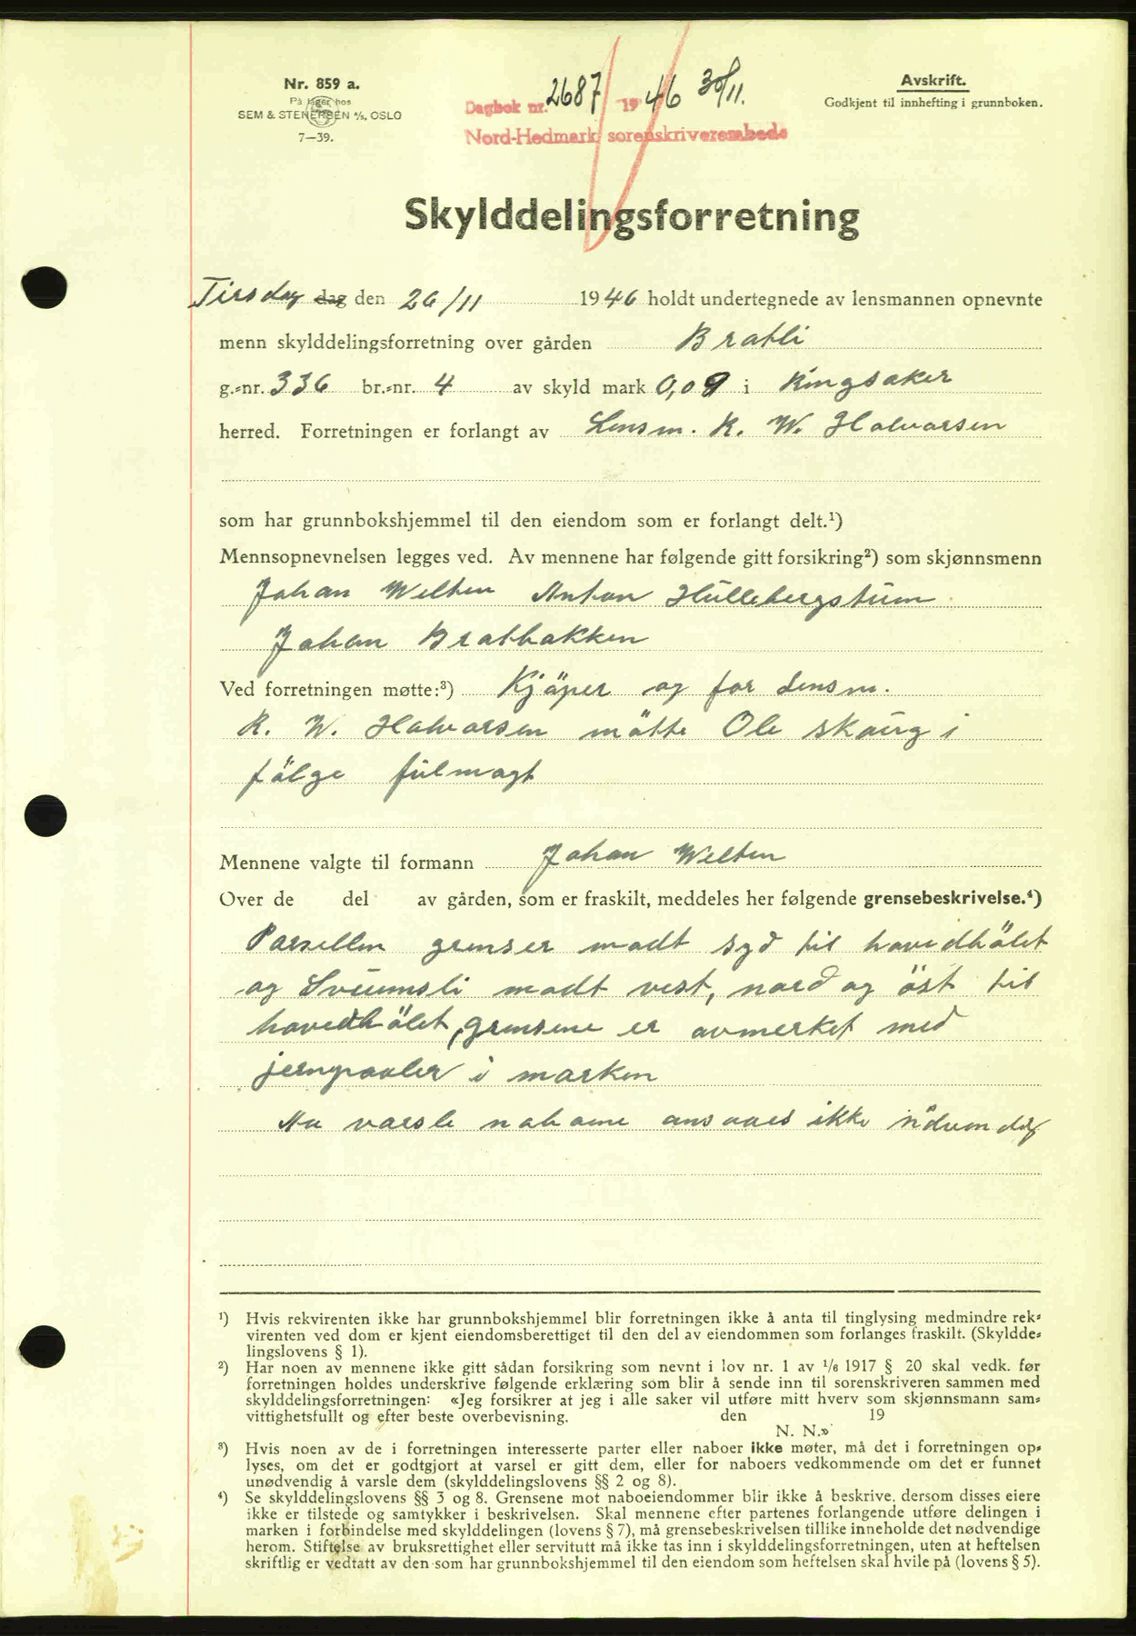 Nr. 859 a.
På lager hos
SEM & STENERSEN A/S, OSLO
7—39.
Dagbok nr. 2687 1946 30/11.
Nord-Hedmark sorenskriverembede
Avskrift.
Godkjent til innhefting i grunnboken.
Skylddelingsforretning
Tirsdag dag den 26/11 1946 holdt undertegnede av lensmannen opnevnte
menn skylddelingsforretning over gården Bratli
g.-nr. 336 br.-nr. 4 av skyld mark 0,09 i Ringsaker
herred. Forretningen er forlangt av Lensm. K. W. Halvorsen
som har grunnbokshjemmel til den eiendom som er forlangt delt.¹)
Mennsopnevnelsen legges ved. Av mennene har følgende gitt forsikring²) som skjønnsmenn
Johan Welten Anton Hullebergstuen
Johan Bratbakken
Ved forretningen møtte:³) Kjöper og for Lensm.
K. W. Halvorsen mötte Ole Skaug i
fölge fulmagt
Mennene valgte til formann Johan Welten
Over de del av gården, som er fraskilt, meddeles her følgende grensebeskrivelse.⁴)
Parsellen grenser modt syd til hovedbölet
og Sveumsli modt vest, nord og öst til
hovedbölet, grensene er avmerket med
jernpaaler i marken
Aa varsle naboene ansaaes ikke nödvendig
¹) Hvis rekvirenten ikke har grunnbokshjemmel blir forretningen ikke å anta til tinglysing medmindre rek-
virenten ved dom er kjent eiendomsberettiget til den del av eiendommen som forlanges fraskilt. (Skyldde-
lingslovens § 1).
²) Har noen av mennene ikke gitt sådan forsikring som nevnt i lov nr. 1 av 1/6 1917 § 20 skal vedk. før
forretningen holdes underskrive følgende erklæring som blir å sende inn til sorenskriveren sammen med
skylddelingsforretningen: «Jeg forsikrer at jeg i alle saker vil utføre mitt hverv som skjønnsmann sam-
vittighetsfullt og efter beste overbevisning. den 19
N. N.»
³) Hvis noen av de i forretningen interesserte parter eller naboer ikke møter, må det i forretningen op-
lyses, om det er godtgjort at varsel er gitt dem, eller for naboers vedkommende om det er funnet
unødvendig å varsle dem (skylddelingslovens §§ 2 og 8).
⁴) Se skylddelingslovens §§ 3 og 8. Grensene mot naboeiendommer blir ikke å beskrive, dersom disses eiere
ikke er tilstede og samtykker i beskrivelsen. Skal mennene efter partenes forlangende utføre delingen i
marken i forbindelse med skylddelingen (lovens § 7), må grensebeskrivelsen tillike inneholde det nødvendige
herom. Stiftelse av bruksrettighet eller servitutt må ikke tas inn i skylddelingsforretningen, uten at heftelsen
skriftlig er vedtatt av den som har grunnbokshjemmel til den eiendom som heftelsen skal hvile på (lovens § 5).